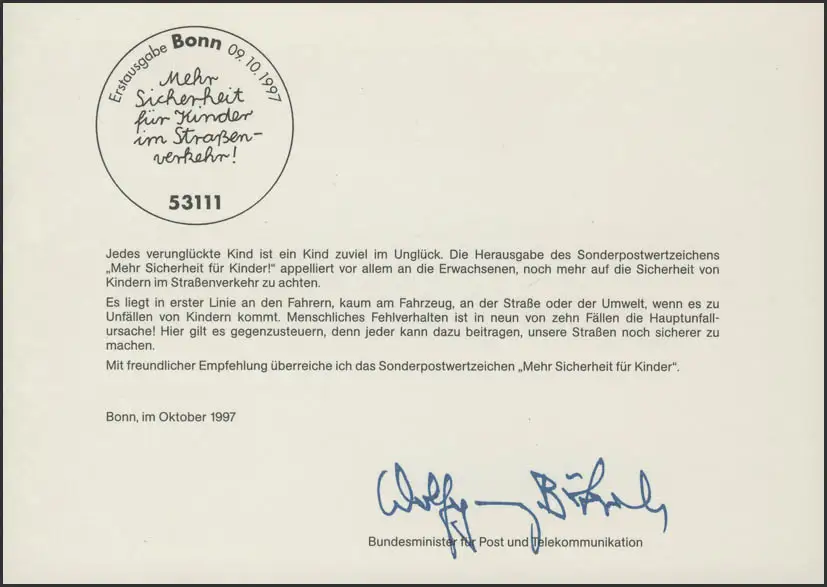 Erstausgabe Bonn 09.10.1997
Mehr
Sicherheit
für Kinder
im Straßen-
verkehr!
53111
Jedes verunglückte Kind ist ein Kind zuviel im Unglück. Die Herausgabe des Sonderpostwertzeichens
„Mehr Sicherheit für Kinder!“ appelliert vor allem an die Erwachsenen, noch mehr auf die Sicherheit von
Kindern im Straßenverkehr zu achten.
Es liegt in erster Linie an den Fahrern, kaum am Fahrzeug, an der Straße oder der Umwelt, wenn es zu
Unfällen von Kindern kommt. Menschliches Fehlverhalten ist in neun von zehn Fällen die Hauptunfall-
ursache! Hier gilt es gegenzusteuern, denn jeder kann dazu beitragen, unsere Straßen noch sicherer zu
machen.
Mit freundlicher Empfehlung überreiche ich das Sonderpostwertzeichen „Mehr Sicherheit für Kinder“.
Bonn, im Oktober 1997
Wolfgang Bötsch
Bundesminister für Post und Telekommunikation